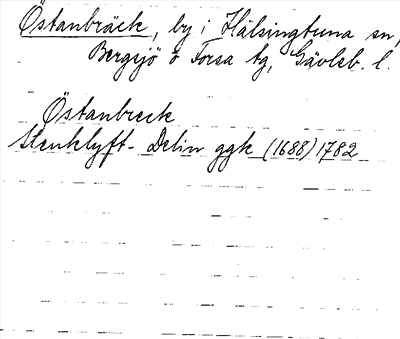 Östanbräck, by i Hälsingtuna sn,
Bergsjö o Forsa tg, Gävleb. l.
Östanbreck
Stenklyft- Delin ggk (1688) 1782